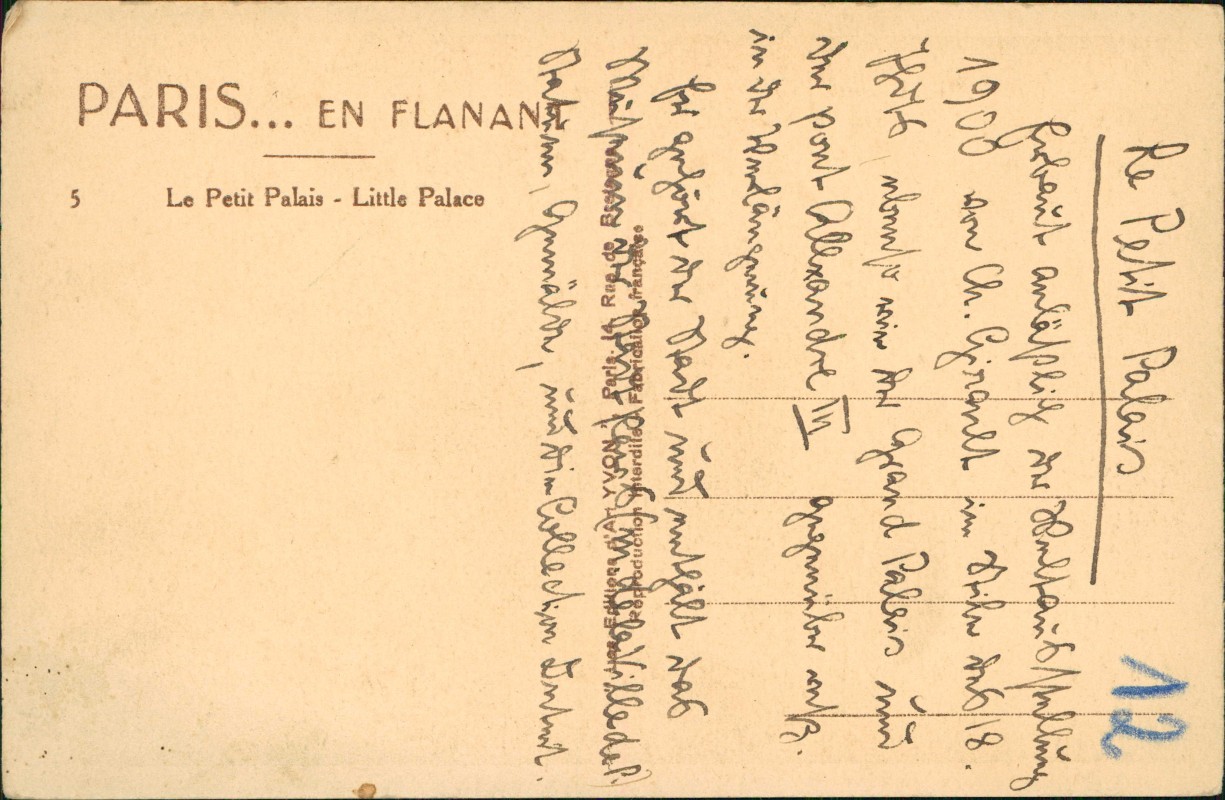 PARIS... EN FLANANT
5 Le Petit Palais - Little Palace
Editions d'Art YVON, Paris, 14 Rue de
Reproduction Interdite Fabrication française
Le Petit Palais
Gebaut anläßlich der Weltausstellung
1900 von Ch. Girault im Stile des 18.
Jhdts, ebenso wie der Grand Palais und
der pont Alexandre III gegenüber auf
in der Verlängerung.
Er gehört der Stadt und enthält das
Museum der
Statuen, Gemälde, und die Collection Dutuit.
12